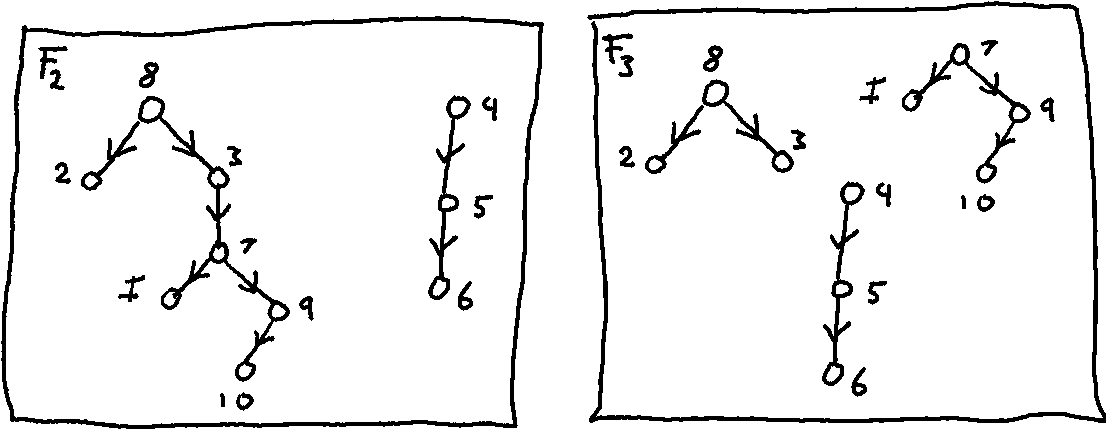 F2
8
2
3
7
I
9
10
4
5
6
F3
8
2
3
7
I
9
10
4
5
6